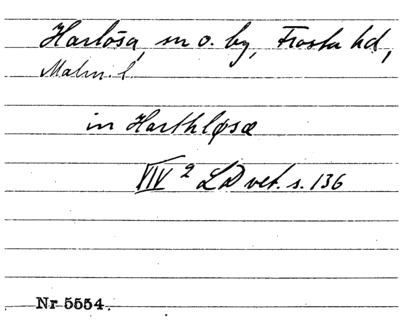 Harlösa, sn o. by, Frosta hd,
Malm. l.
in Harthløsæ
XIV 2 LD vet. s. 136
Nr 5554.